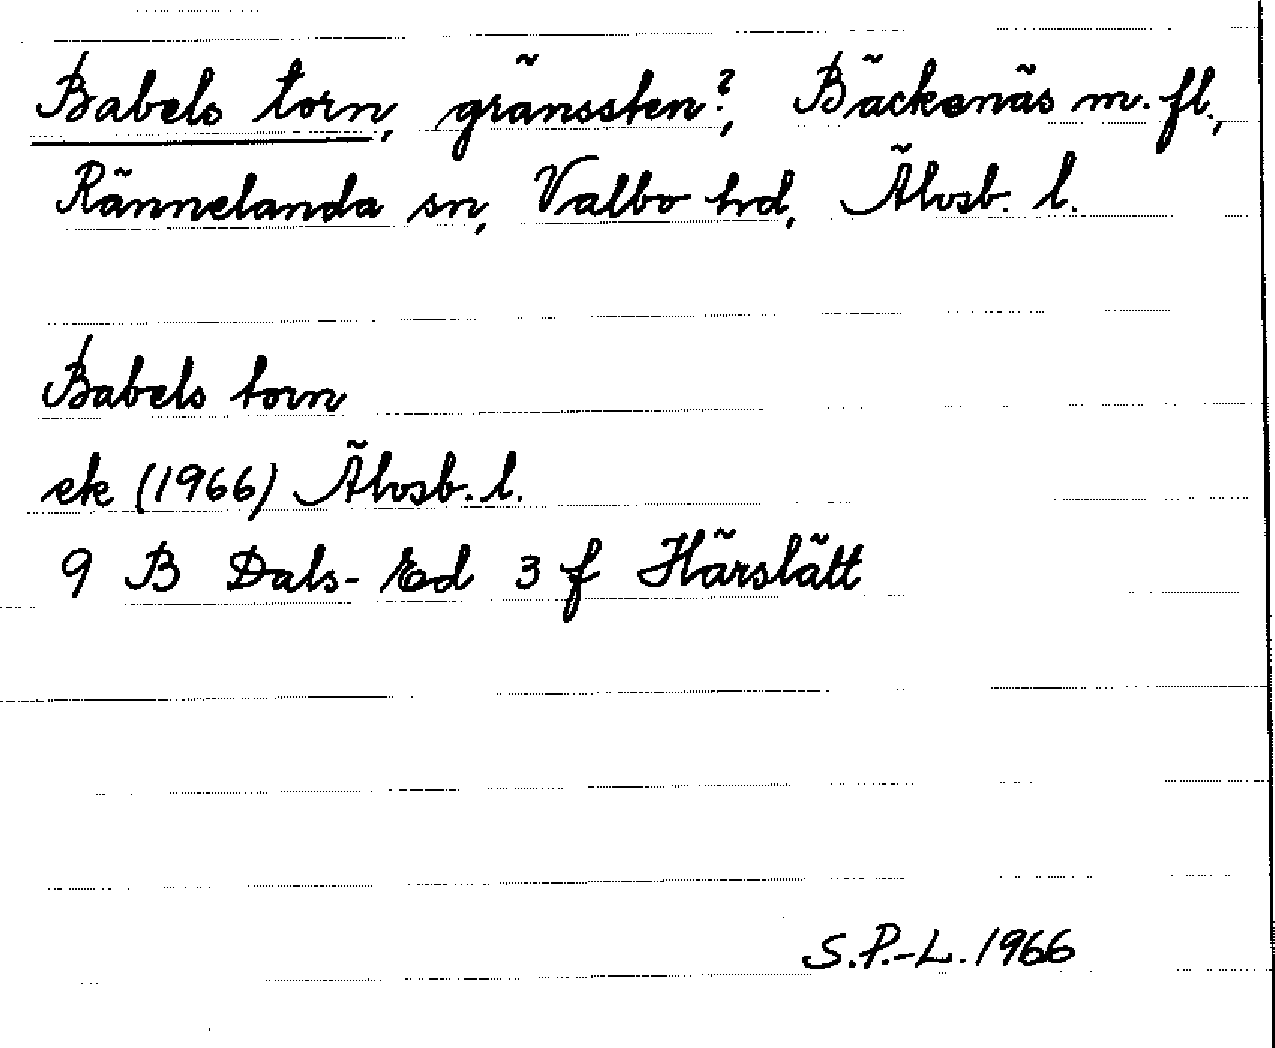 Babels torn, gränssten?, Bäckenäs m. fl.,
Rännelanda sn, Valbo hd, Älvsb. l.
Babels torn
ek (1966) Älvsb. l.
9 B Dals-Ed 3 f Härslätt
S.P.-L. 1966